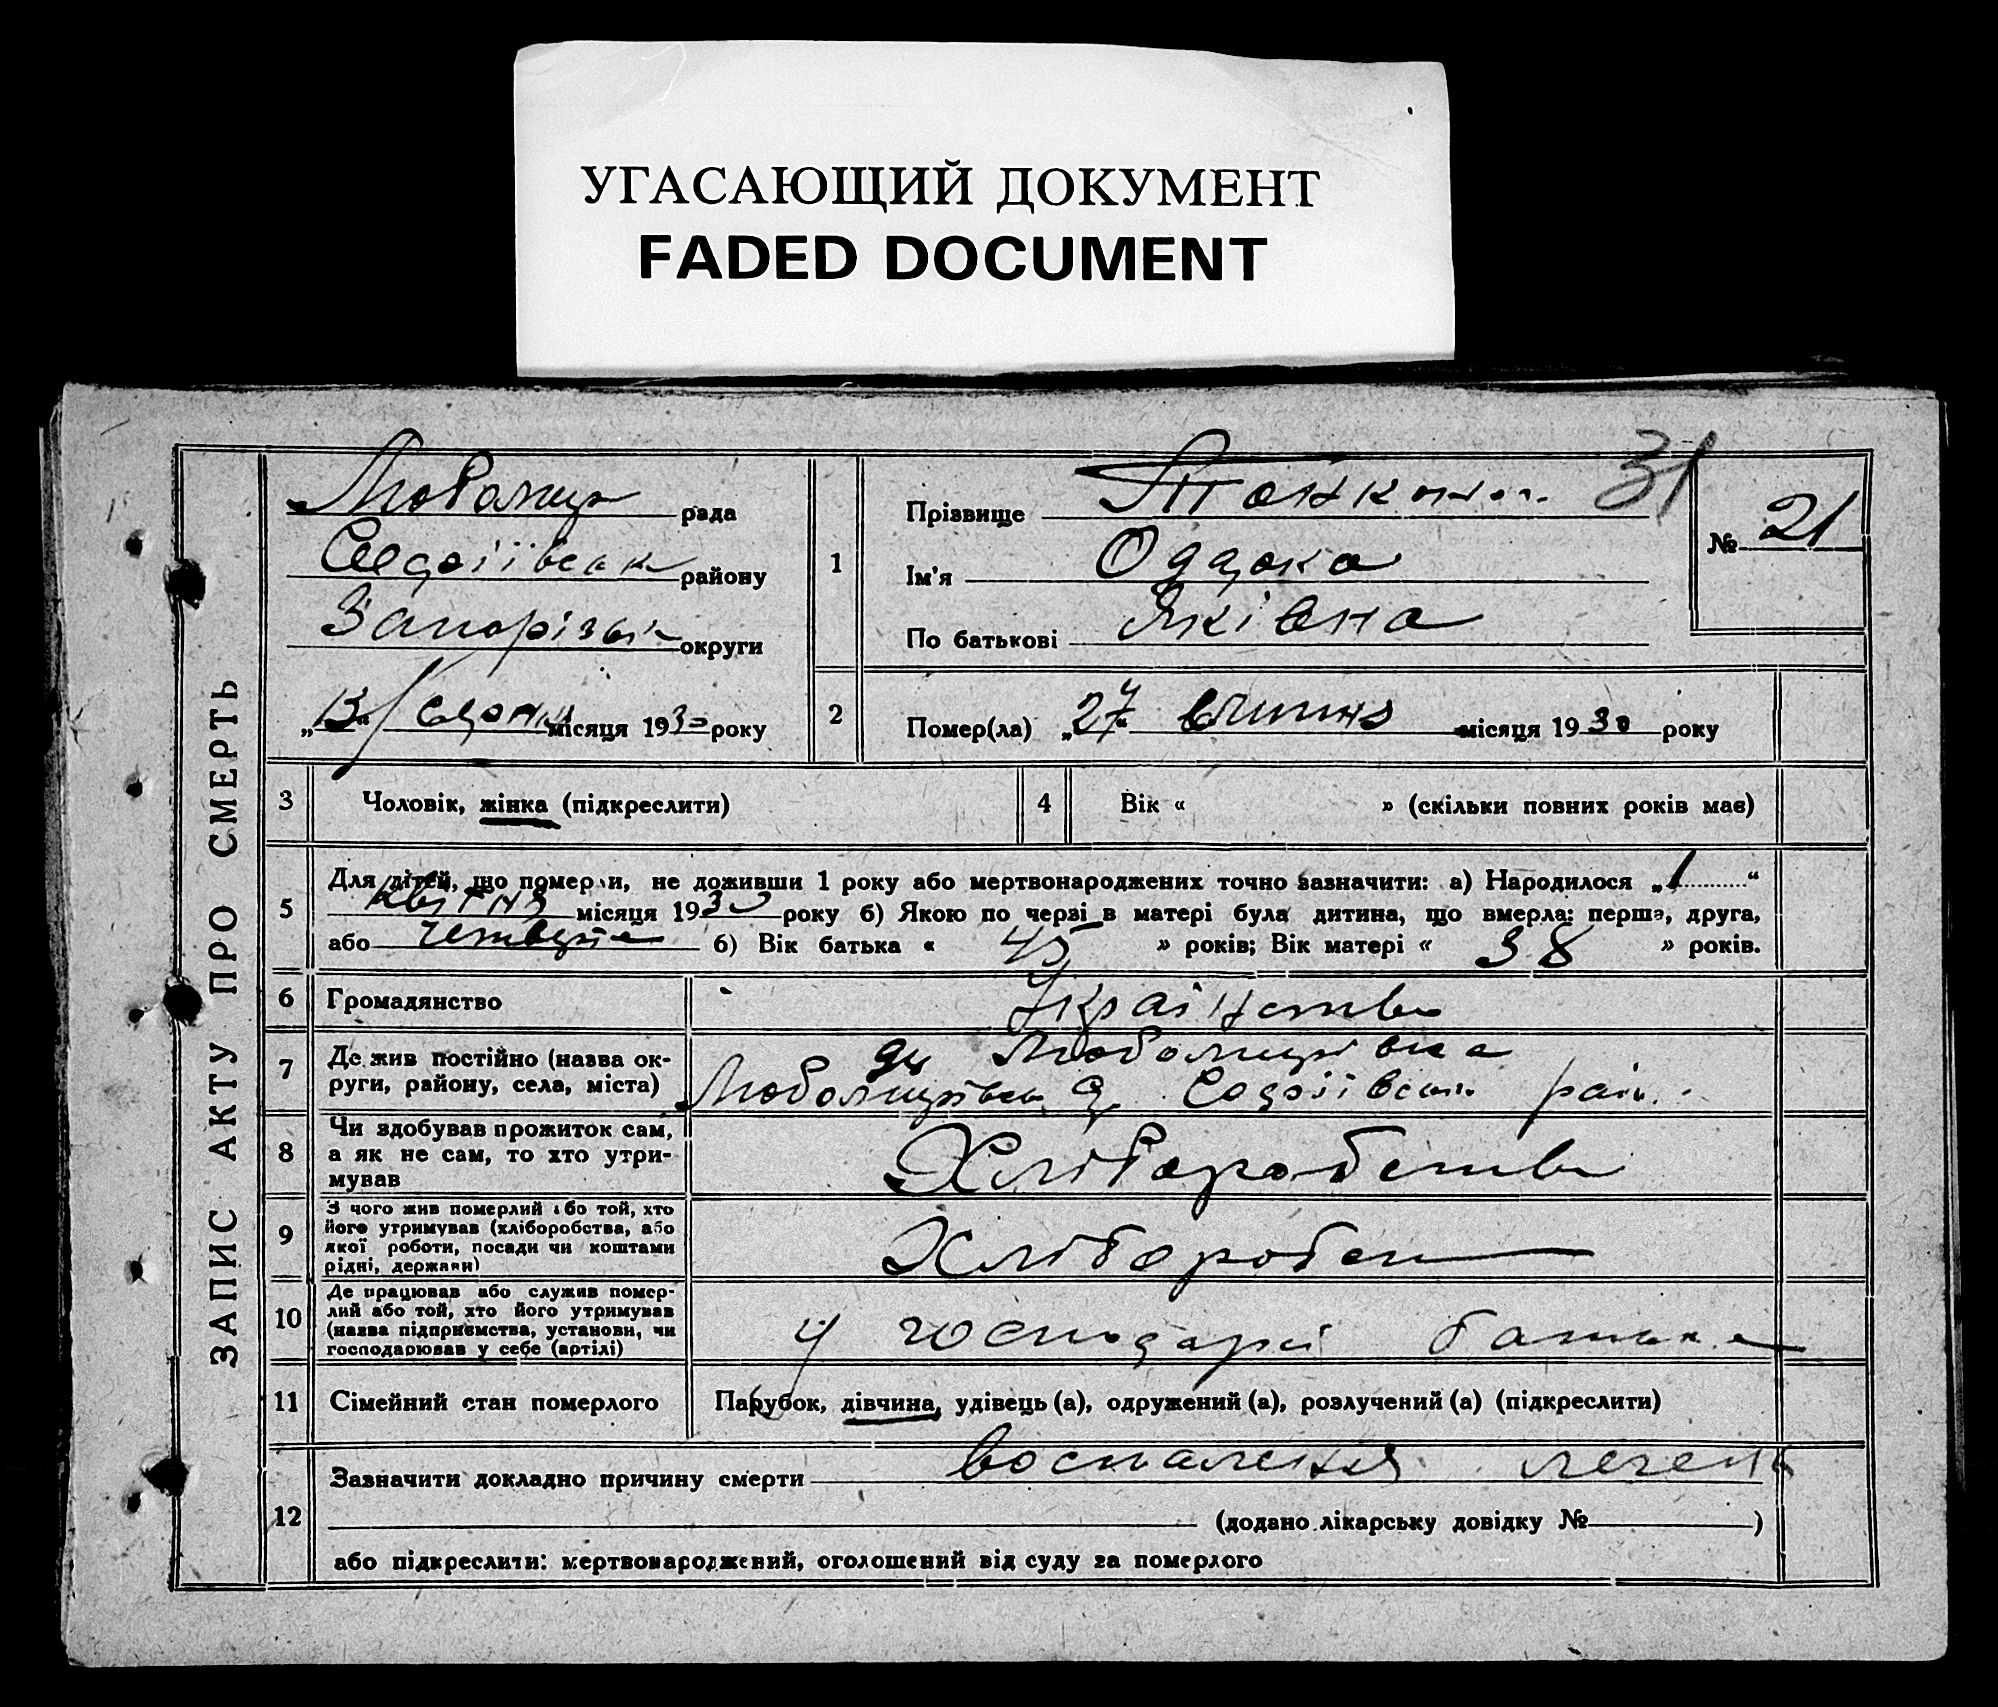 УГАСАЮЩИЙ ДОКУМЕНТ
FADED DOCUMENT
ЗАПИС АКТУ ПРО СМЕРТЬ
рада
району
округи
„13“ місяця 1930 року
1
Прізвище
31
Ім'я
По батькові Яківна
№ 21
2
Помер(ла) „27“ місяця 1930 року
3
Чоловік, жінка (підкреслити)
4
Вік « » (скільки повних років має)
5
Для дітей, що померли, не доживши 1 року або мертвонароджених точно зазначити: а) Народилося „1“
квітня місяця 1930 року б) Якою по черзі в матері була дитина, що вмерла: перша, друга,
або четверта б) Вік батька « 45 » років; Вік матері « 38 » років.
6
Громадянство
7
Де жив постійно (назва ок-
руги, району, села, міста)
8
Чи здобував прожиток сам,
а як не сам, то хто утри-
мував
9
З чого жив померлий або той, хто
його утримував (хліборобства, або
якої роботи, посади чи коштами
рідні, держави)
10
Де працював або служив помер-
лий або той, хто його утримував
(назва підприємства, установи, чи
господарював у себе (артілі)
у господарі батька
11
Сімейний стан померлого
Парубок, дівчина, удівець (а), одружений (а), розлучений (а) (підкреслити)
12
Зазначити докладно причину смерти воспаления
(додано лікарську довідку № )
або підкреслити: мертвонароджений, оголошений від суду за померлого